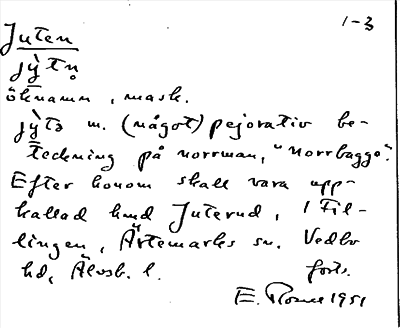 1-3
Juten
jỳtn̥
öknamn, mask.
jỳtə m. (något) pejorativ be-
teckning på norrman, "norrbagge".
Efter honom skall vara upp-
kallad hmd Juterud, i Fil-
lingen, Ärtemarks sn. Vedbo
hd, Älvsb. l. forts.
E. 1951